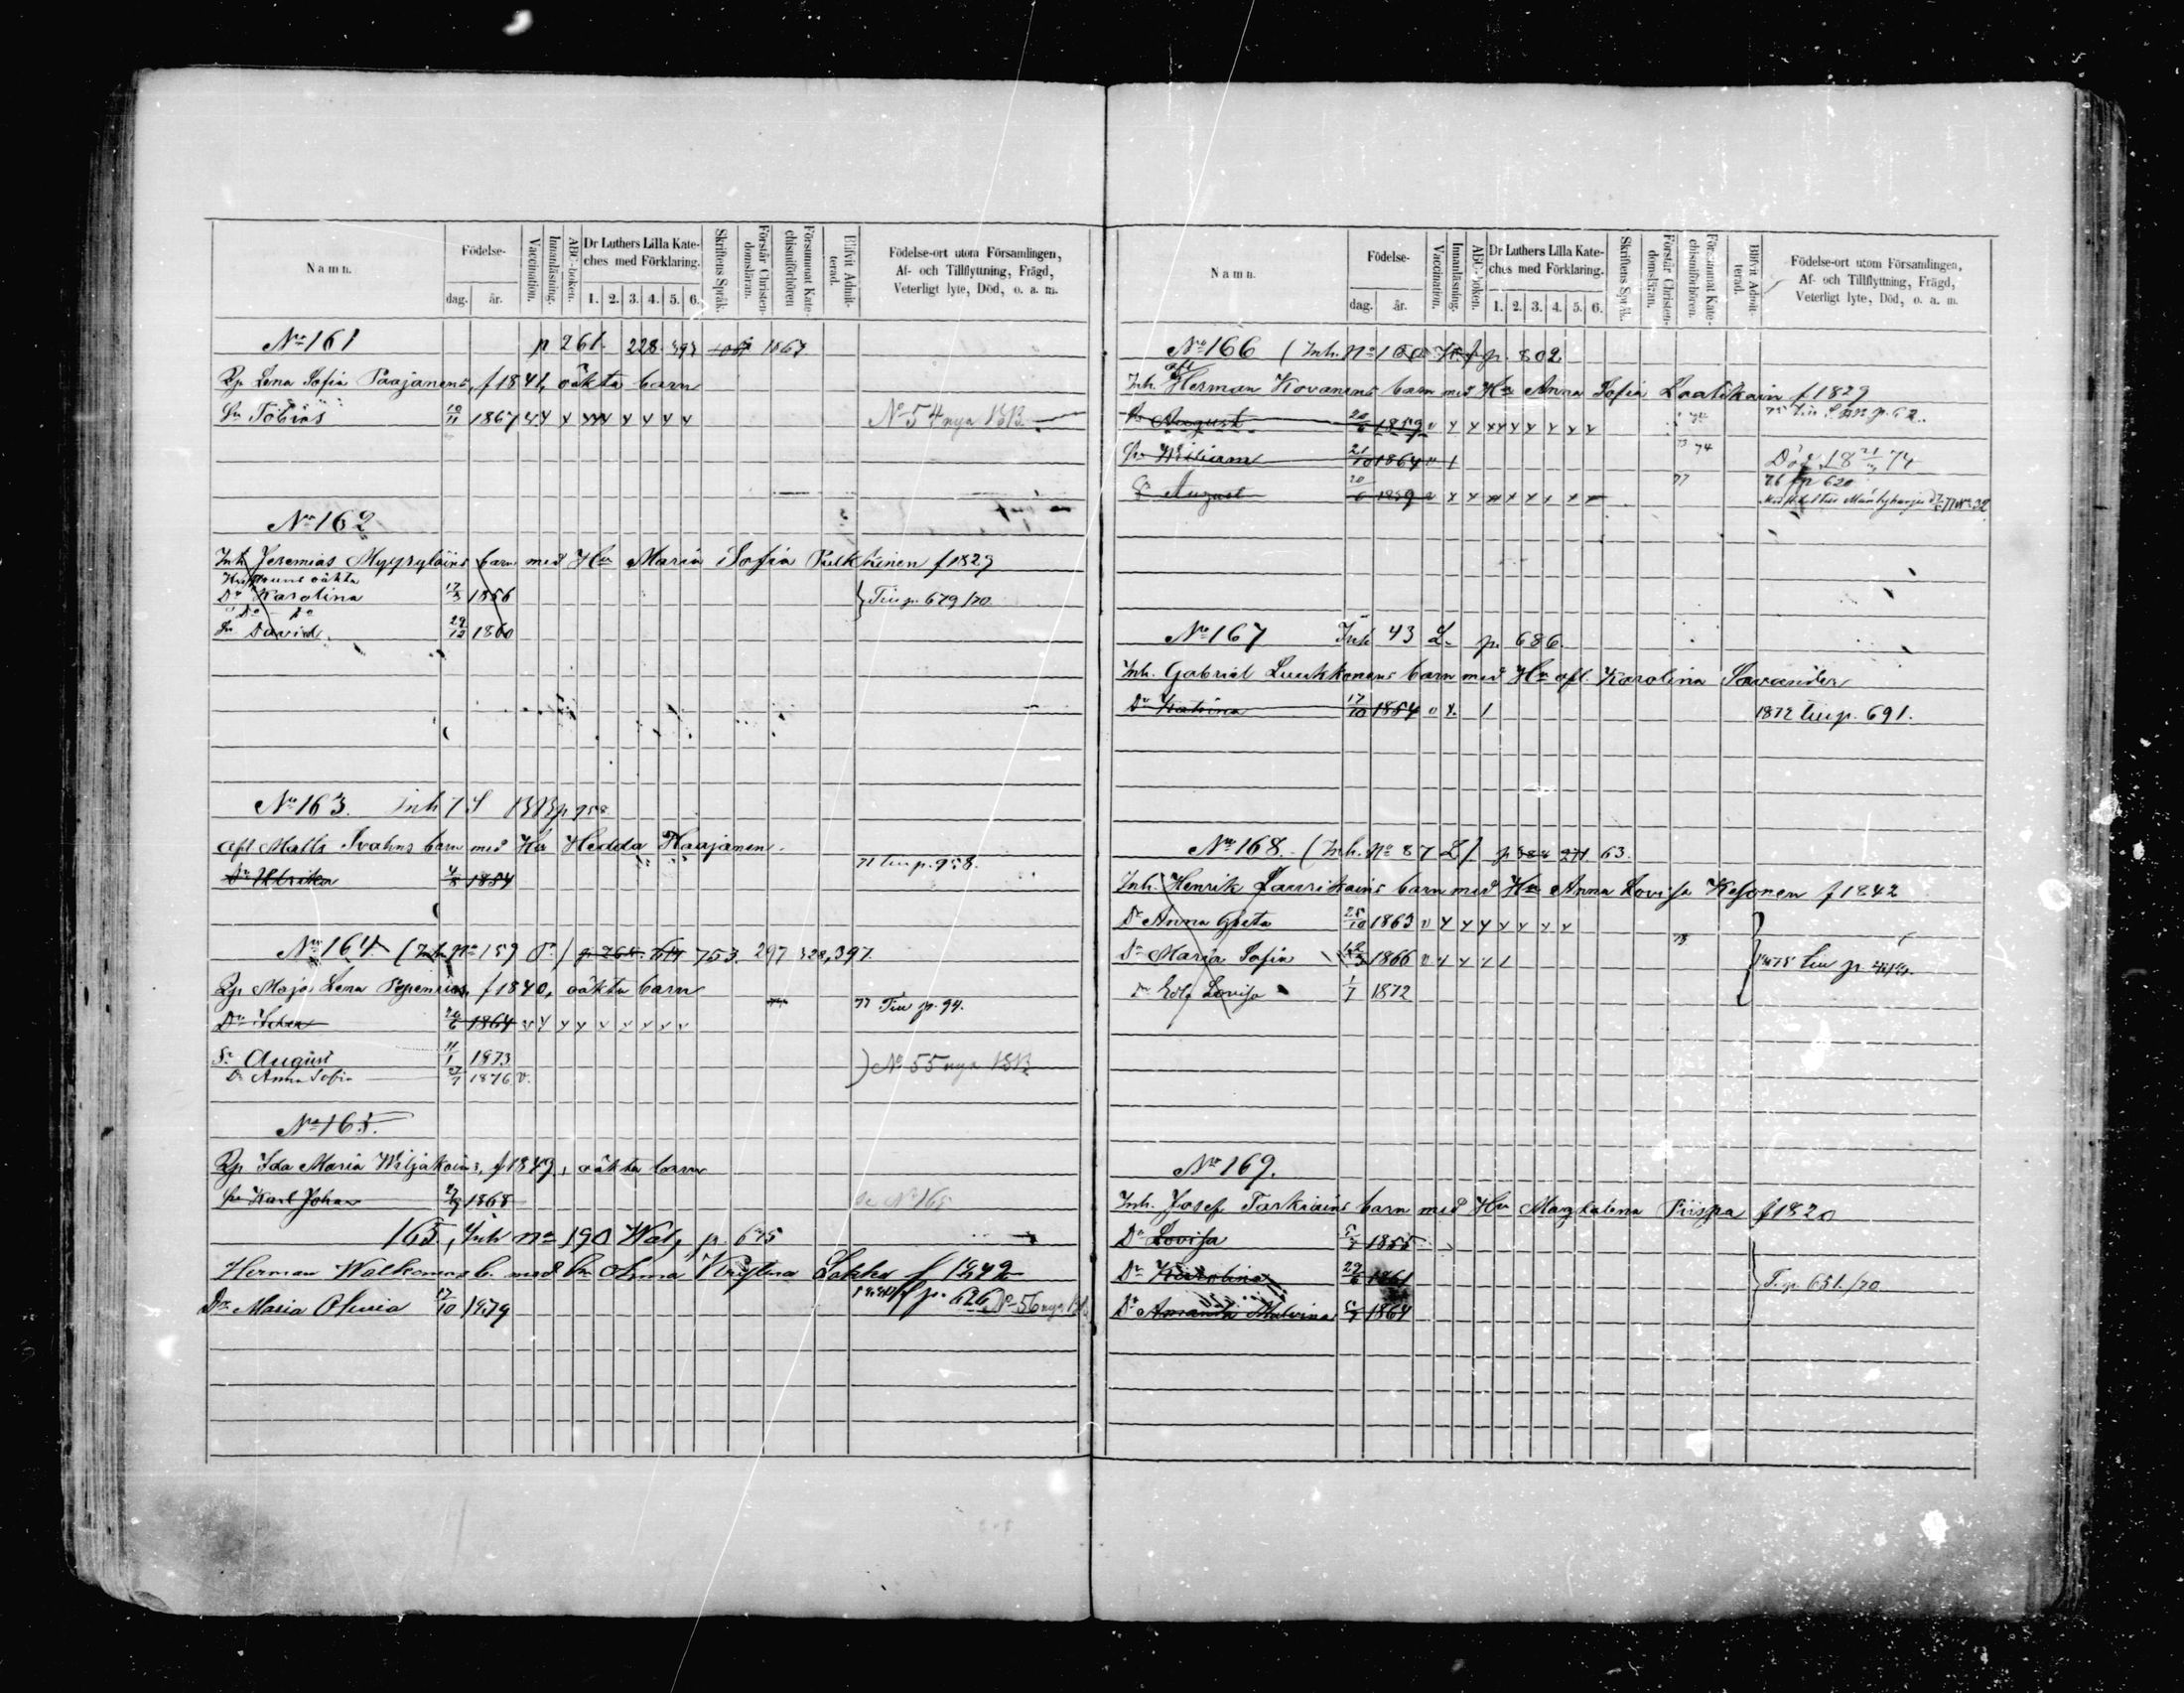 Namn.
Födelse-
dag. år.
Vaccination.
Innanläsning.
ABC-boken.
Dr Luthers Lilla Kate-
ches med Förklaring.
1. 2. 3. 4. 5. 6.
Skriftens Språk.
Förstår Christen-
domsläran.
Försummat Kate-
chismiförhören
Blifvit Admit-
terad.
Födelse-ort utom Församlingen,
Af- och Tillflyttning, Frägd,
Veterligt lyte, Död, o. a. m.
No 161 p 261. 228. 1867
Lena Sofia Paajanens, f 1841, oäkta barn
Sn Tobias 10/11 1867 No 54 nya BB.
No 162
Inh Jeremias Myyryläins barn med Hu Maria Sofia Pulkkinen f 1829
oäkta
Dr Karolina 17/3 1856 Tiu p. 679/70
Do Do
Sn David 29/12 1860
No 163. Inh 7 S BB p 958
afl Matts Ivahns barn med Hu Hedda Haajanen
Dr Ulrika 1854 71 tiu p. 958.
No 164. (Inh No 159 P.) p 268. 753. 297 328, 397.
Maja Lena Peponens, f 1840, oäkta barn
Dr 1864 77 Tiu p. 94.
Sn August 11/1 1873 No 55 nya BB
Dr Anna Sofia 27/7 1876 v.
No 165.
Ida Maria Wiljakains, f 1849, oäkta barn
Sn Karl Johan 1868 se No 165
165, Inh No 190 Walj p. 675
Herman Walkonens b. med hu Anna Kristina Lakka f 1842
Dr Maria Olivia 17/10 1879 p. 626 No 56 nya BB
Namn.
Födelse-
dag. år.
Vaccination.
Innanläsning.
ABC-boken.
Dr Luthers Lilla Kate-
ches med Förklaring.
1. 2. 3. 4. 5. 6.
Skriftens Språk.
Förstår Christen-
domsläran.
Försummat Kate-
chismiförhören.
Blifvit Admit-
terad.
Födelse-ort utom Församlingen,
Af- och Tillflyttning, Frägd,
Veterligt lyte, Död, o. a. m.
No 166 (Inh. No p. 802
afl
Inh. Herman Kovanens barn med Hu Anna Sofia Laatikain f 1829
Sn August 20/6 1859 v 75 Tiu p. 62.
Sn Wiliam 21/10 1864 v 74 Död 18 21/3 74
S August 20/6 1859 77 76 fr p 620
Mäntyharju
No 167 Inh 43 L. p. 686.
Inh. Gabriel Luukkonens barn med Hu afl. Karolina Savander
Dr Katrina 17/10 1854 v 1872 tiu p. 691.
No 168. (Inh. No 87 L) p 271 63.
Inh. Henrik Laurikains barn med Hu Anna Lovisa Kesonen f 1842
Dr Anna Greta 25/10 1863 v
Dr Maria Sofia 1866 v 78 1875 tiu p.
Dr Lovisa 1/7 1872
No 169.
Inh. Josef Tarkiains barn med Hu Magdalena Piispa f 1820
Dr Lovisa 1855
Dr Karolina 29/6 1861 T. p. 651./70
Dr Amanda Malvina 1864